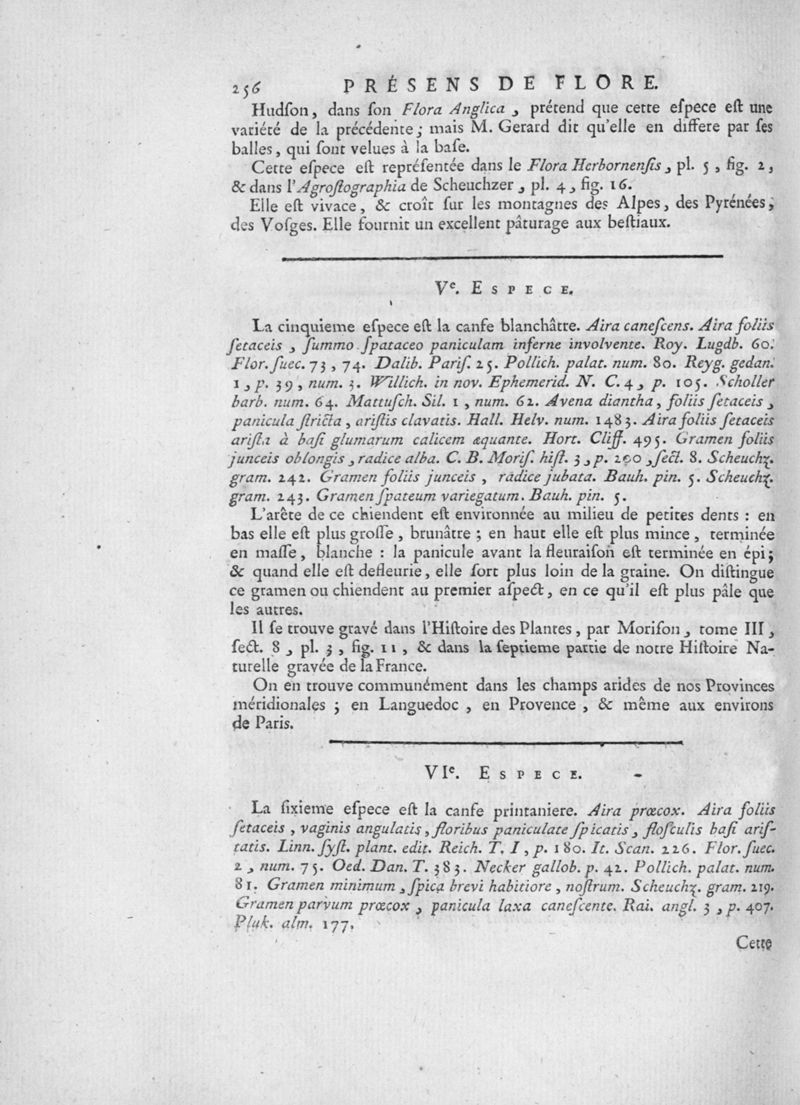 256 PRÉSENS DE FLORE.
Hudſon, dans ſon Flora Anglica, prétend que cette eſpece eſt une
variété de la précédente; mais M. Gerard dit qu'elle en differe par ſes
balles, qui ſont velues à la baſe.
Cette eſpece eſt repréſentée dans le Flora Herbornenſis, pl. 5, fig. 2,
& dans l'Agroſtographia de Scheuchzer, pl. 4, fig. 16.
Elle eſt vivace, & croît ſur les montagnes des Alpes, des Pyrénées,
des Voſges. Elle fournit un excellent pâturage aux beſtiaux.
Ve. ESPECE.
La cinquieme eſpece eſt la canſe blanchâtre. Aira caneſcens. Aira foliis
ſetaceis, ſummo ſpataceo paniculam inferne involvente. Roy. Lugdb. 60.
Flor. ſuec. 73, 74. Dalib. Pariſ. 25. Pollich. palat. num. 80. Reyg. gedan.
1, p. 39, num. 3. Willich. in nov. Ephemerid. N. C. 4, p. 105. Scholler
barb. num. 64. Mattuſch. Sil. 1, num. 62. Avena diantha, foliis ſetaceis,
panicula ſtricta, ariſtis clavatis. Hall. Helv. num. 1483. Aira foliis ſetaceis
ariſta à baſi glumarum calicem æquante. Hort. Cliff. 495. Gramen foliis
junceis oblongis, radice alba. C. B. Moriſ. hiſt. 3, p. 200, ſect. 8. Scheuchz.
gram. 242. Gramen foliis junceis, radice jubata. Bauh. pin. 5. Scheuchz.
gram. 243. Gramen ſpateum variegatum. Bauh. pin. 5.
L'arête de ce chiendent eſt environnée au milieu de petites dents : en
bas elle eſt plus groſſe, brunâtre; en haut elle eſt plus mince, terminée
en maſſe, blanche : la panicule avant la fleuraiſon eſt terminée en épi;
& quand elle eſt defleurie, elle ſort plus loin de la graine. On diſtingue
ce gramen ou chiendent au premier aſpect, en ce qu'il eſt plus pâle que
les autres.
Il ſe trouve gravé dans l'Hiſtoire des Plantes, par Moriſon, tome III,
ſect. 8, pl. 3, fig. 11, & dans la ſeptieme partie de notre Hiſtoire Na-
turelle gravée de la France.
On en trouve communément dans les champs arides de nos Provinces
méridionales; en Languedoc, en Provence, & même aux environs
de Paris.
VIe. ESPECE.
La ſixieme eſpece eſt la canſe printaniere. Aira præcox. Aira foliis
ſetaceis, vaginis angulatis, floribus paniculate ſpicatis, floſculis baſi ariſ-
tatis. Linn. ſyſt. plant. edit. Reich. T. I, p. 180. It. Scan. 226. Flor. ſuec.
2, num. 75. Oed. Dan. T. 383. Necker gallob. p. 42. Pollich. palat. num.
81. Gramen minimum, ſpica brevi habitiore, noſtrum. Scheuchz. gram. 219.
Gramen parvum præcox, panicula laxa caneſcente. Rai. angl. 3, p. 407.
Pluk. alm. 177.
Cette